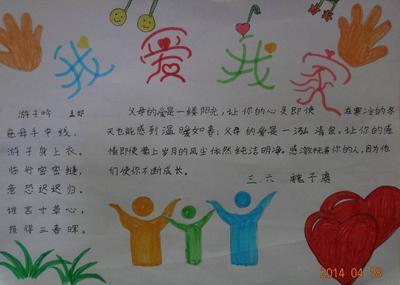 我爱我家
游子吟 孟郊
慈母手中线,
游子身上衣。
临行密密缝,
意恐迟迟归。
谁言寸草心,
报得三春晖。
父母的爱是一缕阳光,让你的心灵即使在寒冷的冬
天也能感到温暖如春;父母的爱是一泓清泉,让你的情
感即使蒙上岁月的风尘依然纯洁明净。感激抚养你的人,因为他
们使你不断成长。
三.六
2014 04 18